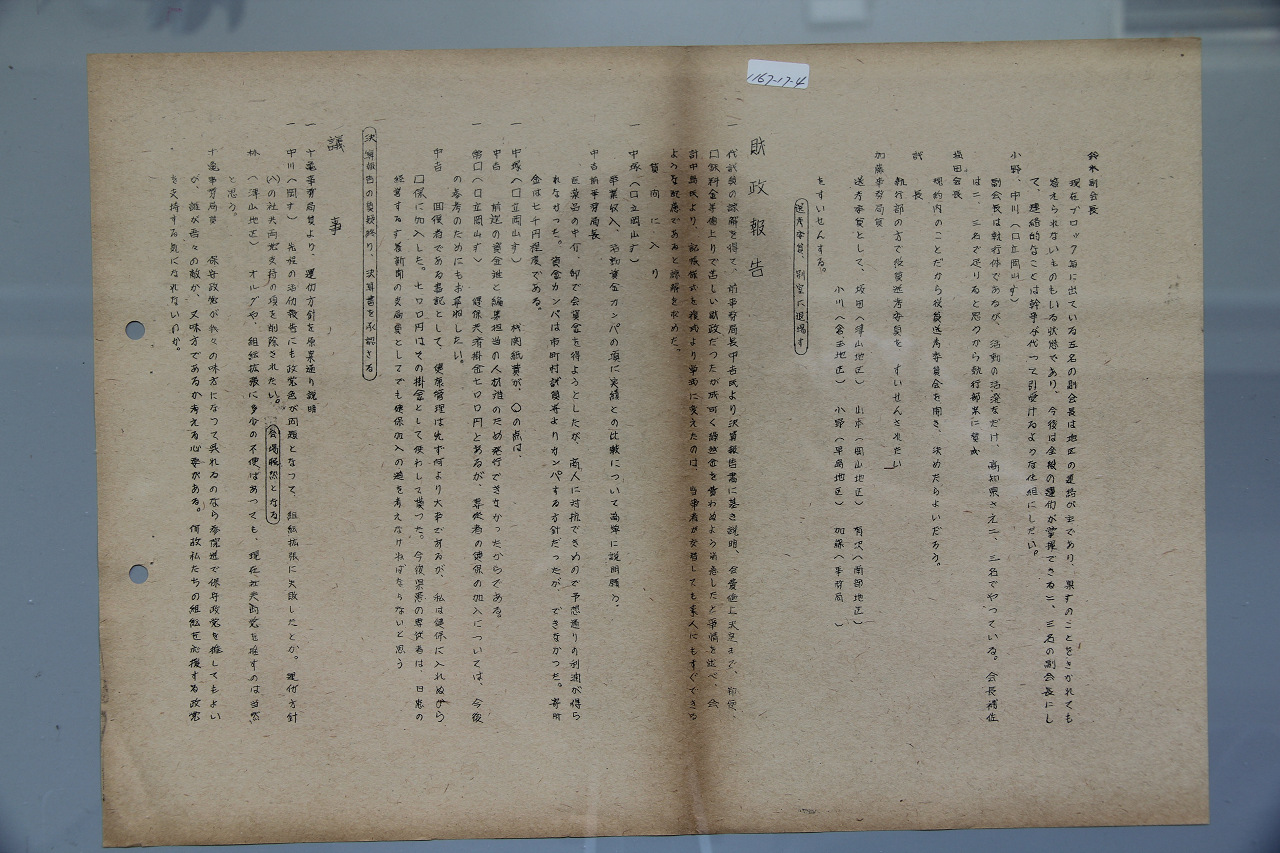 1167-17-4
鈴木副会長
現在ブロック毎に出ている五名の副会長は地区の連絡が主であり、県すのことをきかれても
答えられないものもいる状態であり、今後は全般の運付が掌握できる二、三名の副会長にし
て、連絡的なことは幹事が代って引受けるような仕組にしたい。
小野、中川（口立岡山す）
副会長は執行件であるが、活動の活溌なだけ、高知県さえ二、三名でやつている。会長補佐
は二、三名で足りると思うから執行部案に賛成
坂田会長
規約内のことだから役員送考委員会を開き、決めたらよいだろう。
試長
執行部の方で役員送考委員を すいせんされたい
加藤事務局員
送考委員として、坂田（津山地区） 山本（岡山地区） 有沢（南部地区）
小川（倉玉地区） 小野（早島地区） 加藤（事務局）
をすいせんする。
送考委員、別室に退場す
財政報告
一 代試員の諒解を得て、前事務局長中吉氏より決算報告書に基き説明、会費値上
口鉄料金半値上りで苦しい財政だつたが
計中島氏より、記帳様式を複式より単式に変えたのは、当事者が交替しても素人にもすぐできる
ような配慮であると諒解を求めた。
質問に入り
一 中塚（口立岡山す）
事業収入、活動資金カンパの項に実績との比較について説明願う。
中吉前事務局長
医薬品の中介、印で会資金を得ようとしたが、商人に対抗できぬので予想通りの利潤が得ら
れなかつた。資金カンパは市町村試員等よりカンパする方針だつたが、できなかつた。寄附
金は七千円程度である。
一 中塚（口立岡山す） 機関紙業が、〇の点は、
中吉 前述の資金難と編集担当の人材難のため発行できなかつたからである。
一 （口立岡山す） 健保夫者掛金七〇〇円とあるが、専従者の健保の加入については、今後
の参考のためにもお尋ねしたい。
中吉 回復者である書記として、健康管理は先ず何より大事であるが、私は健保に入れぬから
口保に加入した。七〇〇円はその掛金として使わして貰つた。今後県患の専従者は、日患の
経営するす苔新聞の支局員としてでも健保加入の道を考えなければならないと思う
決算報告の質疑終り、決算書を承認さる
議事
一 十亀事務局員より、運付方針を原案通り説明
一 中川（岡す） 先程の活仂報告にも政党色が問題となつて、組絵拡張に失敗したとか。運付方針
(八)の社共両党支持の項を削除されたい。 会場騒然となる
林（津山地区） オルグや、組絵拡張に多少の不便はあつても、現在社共両党を推すのは当然
と思う。
十亀事務局員 保守政党が我々の味方になつて呉れるのなら参院選で保守政党を推してもよい
が、誰が吾々の敵か、又味方であるか考える必要がある。何故私たちの組絵を応援する政党
を支持する気になれないのか。